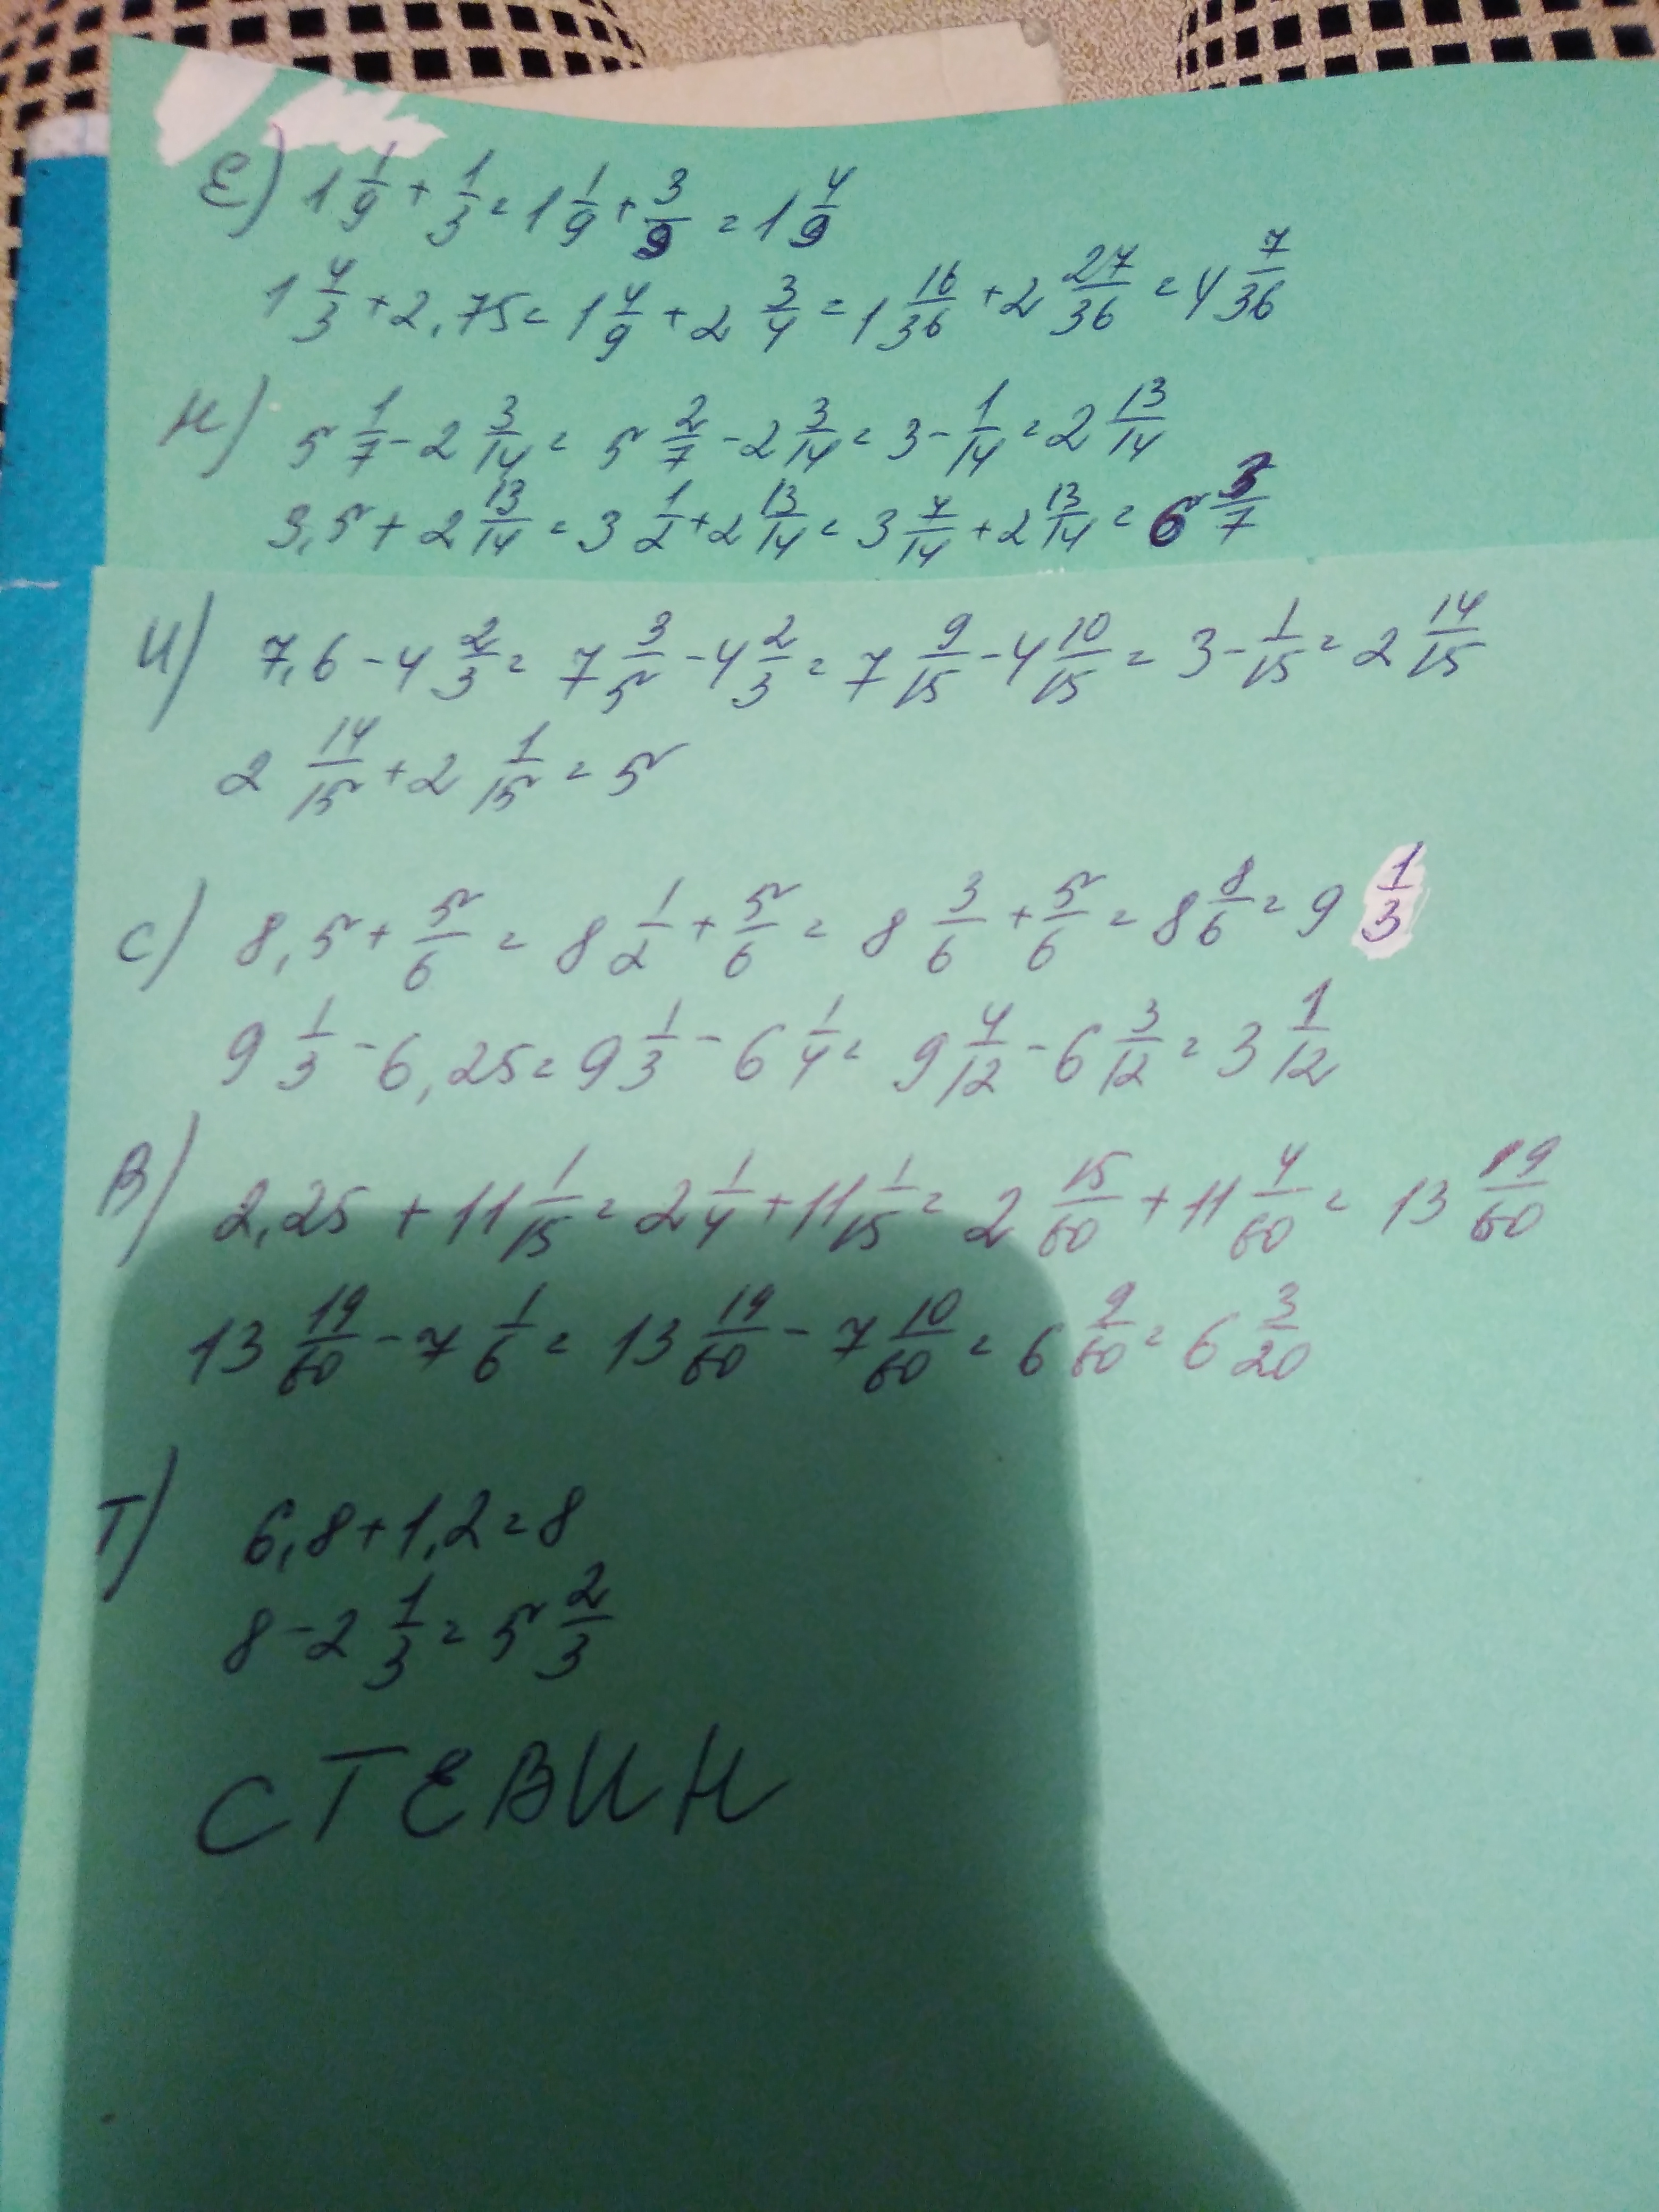 Е) 1 1/9 + 1/3 = 1 1/9 + 3/9 = 1 4/9
1 4/3 + 2,75 = 1 4/9 + 2 3/4 = 1 16/36 + 2 27/36 = 4 7/36
Н) 5 1/7 - 2 3/14 = 5 2/7 - 2 3/14 = 3 - 1/14 = 2 13/14
3,5 + 2 13/14 = 3 1/2 + 2 13/14 = 3 7/14 + 2 13/14 = 6 3/7
И) 7,6 - 4 2/3 = 7 3/5 - 4 2/3 = 7 9/15 - 4 10/15 = 3 - 1/15 = 2 14/15
2 14/15 + 2 1/15 = 5
С) 8,5 + 5/6 = 8 1/2 + 5/6 = 8 3/6 + 5/6 = 8 8/6 = 9 1/3
9 1/3 - 6,25 = 9 1/3 - 6 1/4 = 9 4/12 - 6 3/12 = 3 1/12
В) 2,25 + 11 1/15 = 2 1/4 + 11 1/15 = 2 15/60 + 11 4/60 = 13 19/60
13 19/60 - 7 1/6 = 13 19/60 - 7 10/60 = 6 9/60 = 6 3/20
Т) 6,8 + 1,2 = 8
8 - 2 1/3 = 5 2/3
СТЕВИН